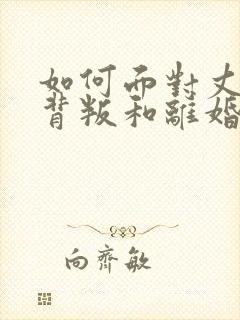 如何面對丈
背叛和離婚
向齊敏